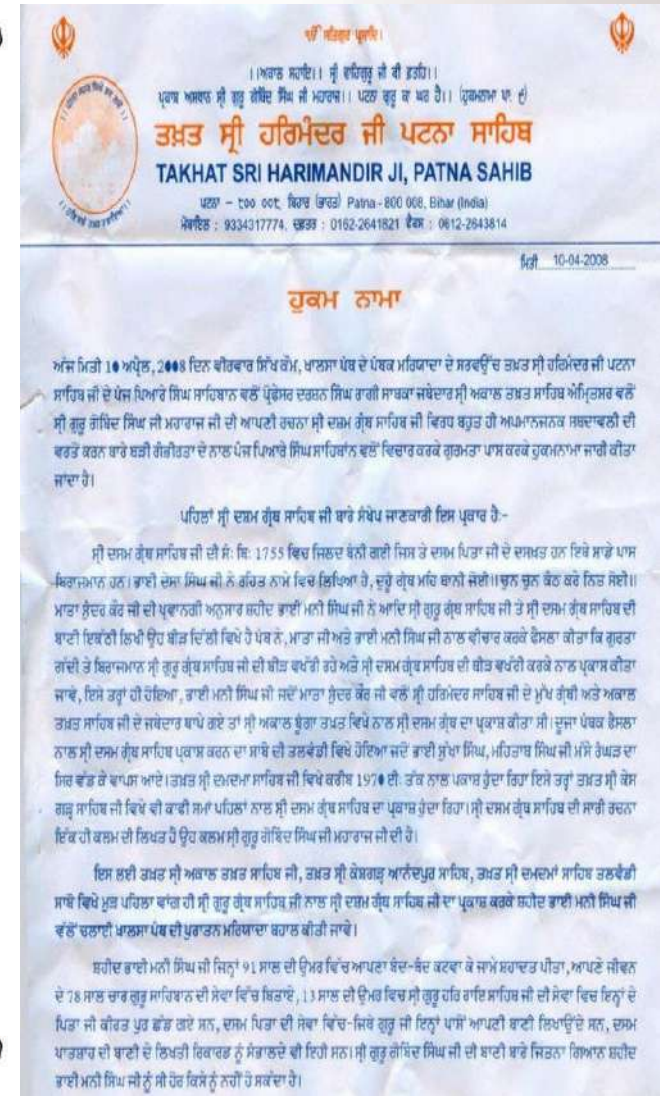 ੴ ਸਤਿਗੁਰ ਪ੍ਰਸਾਦਿ।
।।ਅਕਾਲ ਸਹਾਇ।। ਸ੍ਰੀ ਵਾਹਿਗੁਰੂ ਜੀ ਕੀ ਫ਼ਤਹਿ।।
ਪ੍ਰਕਾਸ਼ ਅਸਥਾਨ ਸ੍ਰੀ ਗੁਰੂ ਗੋਬਿੰਦ ਸਿੰਘ ਜੀ ਮਹਾਰਾਜ।। ਪਟਨਾ ਗੁਰੂ ਕਾ ਘਰ ਹੈ।। (ਹੁਕਮਨਾਮਾ ਪਾ:
ਤਖ਼ਤ ਸ੍ਰੀ ਹਰਿਮੰਦਰ ਜੀ ਪਟਨਾ ਸਾਹਿਬ
TAKHAT SRI HARIMANDIR JI, PATNA SAHIB
ਪਟਨਾ - ੮੦੦ ੦੦੮, ਬਿਹਾਰ (ਭਾਰਤ) Patna - 800 008, Bihar (India)
ਮੋਬਾਇਲ : 9334317774, ਦਫ਼ਤਰ : 0162-2641821 ਫੈਕਸ : 0612-2643814
ਮਿਤੀ 10-04-2008
ਹੁਕਮ ਨਾਮਾ
ਅੱਜ ਮਿਤੀ 10 ਅਪ੍ਰੈਲ, 2008 ਦਿਨ ਵੀਰਵਾਰ ਸਿੱਖ ਕੌਮ, ਖਾਲਸਾ ਪੰਥ ਦੇ ਪੰਥਕ ਮਰਿਯਾਦਾ ਦੇ ਸਰਵਉੱਚ ਤਖ਼ਤ ਸ੍ਰੀ ਹਰਿਮੰਦਰ ਜੀ ਪਟਨਾ
ਸਾਹਿਬ ਜੀ ਦੇ ਪੰਜ ਪਿਆਰੇ ਸਿੰਘ ਸਾਹਿਬਾਨ ਵਲੋਂ ਪ੍ਰੋਫੈਸਰ ਦਰਸ਼ਨ ਸਿੰਘ ਰਾਗੀ ਸਾਬਕਾ ਜਥੇਦਾਰ ਸ੍ਰੀ ਅਕਾਲ ਤਖ਼ਤ ਸਾਹਿਬ ਅੰਮ੍ਰਿਤਸਰ ਵਲੋਂ
ਸ੍ਰੀ ਗੁਰੂ ਗੋਬਿੰਦ ਸਿੰਘ ਜੀ ਮਹਾਰਾਜ ਜੀ ਦੀ ਆਪਣੀ ਰਚਨਾ ਸ੍ਰੀ ਦਸ਼ਮ ਗ੍ਰੰਥ ਸਾਹਿਬ ਜੀ ਵਿਰੁਧ ਬਹੁਤ ਹੀ ਅਪਮਾਨਜਨਕ ਸ਼ਬਦਾਵਲੀ ਦੀ
ਵਰਤੋਂ ਕਰਨ ਬਾਰੇ ਬੜੀ ਗੰਭੀਰਤਾ ਦੇ ਨਾਲ ਪੰਜ ਪਿਆਰੇ ਸਿੰਘ ਸਾਹਿਬਾਂਨ ਵਲੋਂ ਵਿਚਾਰ ਕਰਕੇ ਗੁਰਮਤਾ ਪਾਸ ਕਰਕੇ ਹੁਕਮਨਾਮਾ ਜਾਰੀ ਕੀਤਾ
ਜਾਂਦਾ ਹੈ।
ਪਹਿਲਾਂ ਸ੍ਰੀ ਦਸਮ ਗ੍ਰੰਥ ਸਾਹਿਬ ਜੀ ਬਾਰੇ ਸੰਖੇਪ ਜਾਣਕਾਰੀ ਇਸ ਪ੍ਰਕਾਰ ਹੈ:-
ਸ੍ਰੀ ਦਸਮ ਗ੍ਰੰਥ ਸਾਹਿਬ ਜੀ ਦੀ ਸੰ: ਬਿ: 1755 ਵਿਚ ਜਿਲਦ ਬੰਨੀ ਗਈ ਜਿਸ ਤੇ ਦਸਮ ਪਿਤਾ ਜੀ ਦੇ ਦਸਖਤ ਹਨ ਇਥੇ ਸਾਡੇ ਪਾਸ
ਬਿਰਾਜਮਾਨ ਹਨ। ਭਾਈ ਦੇਸਾ ਸਿੰਘ ਜੀ ਨੇ ਰਹਿਤ ਨਾਮੇ ਵਿਚ ਲਿਖਿਆ ਹੈ, ਦੁਹੂੰ ਗ੍ਰੰਥ ਮਹਿ ਬਾਨੀ ਜੋਈ।।ਚੁਨ ਚੁਨ ਕੰਠ ਕਰੇ ਨਿਤ ਸੋਈ।।
ਮਾਤਾ ਸੁੰਦਰ ਕੌਰ ਜੀ ਦੀ ਪ੍ਰਵਾਨਗੀ ਅਨੁਸਾਰ ਸ਼ਹੀਦ ਭਾਈ ਮਨੀ ਸਿੰਘ ਜੀ ਨੇ ਆਦਿ ਸ੍ਰੀ ਗੁਰੂ ਗ੍ਰੰਥ ਸਾਹਿਬ ਜੀ ਤੇ ਸ੍ਰੀ ਦਸਮ ਗ੍ਰੰਥ ਸਾਹਿਬ ਦੀ
ਬਾਣੀ ਇਕੱਠੀ ਲਿਖੀ ਉਹ ਬੀੜ ਦਿੱਲੀ ਵਿਖੇ ਹੈ ਪੰਥ ਨੇ, ਮਾਤਾ ਜੀ ਅਤੇ ਭਾਈ ਮਨੀ ਸਿੰਘ ਜੀ ਨਾਲ ਵੀਚਾਰ ਕਰਕੇ ਫੈਸਲਾ ਕੀਤਾ ਕਿ ਗੁਰਤਾ
ਗੱਦੀ ਤੇ ਬਿਰਾਜਮਾਨ ਸ੍ਰੀ ਗੁਰੂ ਗ੍ਰੰਥ ਸਾਹਿਬ ਜੀ ਦੀ ਬੀੜ ਵਖੱਰੀ ਰਹੇ ਅਤੇ ਸ੍ਰੀ ਦਸਮ ਗ੍ਰੰਥ ਸਾਹਿਬ ਦੀ ਬੀੜ ਵਖਰੀ ਕਰਕੇ ਨਾਲ ਪ੍ਰਕਾਸ਼ ਕੀਤਾ
ਜਾਵੇ, ਇਸੇ ਤਰ੍ਹਾਂ ਹੀ ਹੋਇਆ, ਭਾਈ ਮਨੀ ਸਿੰਘ ਜੀ ਜਦੋਂ ਮਾਤਾ ਸੁੰਦਰ ਕੌਰ ਜੀ ਵਲੋਂ ਸ੍ਰੀ ਹਰਿਮੰਦਰ ਸਾਹਿਬ ਜੀ ਦੇ ਮੁੱਖ ਗ੍ਰੰਥੀ ਅਤੇ ਅਕਾਲ
ਤਖ਼ਤ ਸਾਹਿਬ ਜੀ ਦੇ ਜਥੇਦਾਰ ਥਾਪੇ ਗਏ ਤਾਂ ਸ੍ਰੀ ਅਕਾਲ ਬੁੰਗਾ ਤਖ਼ਤ ਵਿਖੇ ਨਾਲ ਸ੍ਰੀ ਦਸਮ ਗ੍ਰੰਥ ਦਾ ਪ੍ਰਕਾਸ਼ ਕੀਤਾ ਸੀ।ਦੂਜਾ ਪੰਥਕ ਫ਼ੈਸਲਾ
ਨਾਲ ਸ੍ਰੀ ਦਸਮ ਗ੍ਰੰਥ ਸਾਹਿਬ ਪ੍ਰਕਾਸ਼ ਕਰਨ ਦਾ ਸਾਬੋ ਦੀ ਤਲਵੰਡੀ ਵਿਖੇ ਹੋਇਆ ਜਦੋਂ ਭਾਈ ਸੁੱਖਾ ਸਿੰਘ, ਮਹਿਤਾਬ ਸਿੰਘ ਜੀ ਮੱਸੇ ਰੰਘੜ ਦਾ
ਸਿਰ ਵੱਡ ਕੇ ਵਾਪਸ ਆਏ।ਤਖ਼ਤ ਸ੍ਰੀ ਦਮਦਮਾ ਸਾਹਿਬ ਜੀ ਵਿਖੇ ਕਰੀਬ 1970 ਈ: ਤੱਕ ਨਾਲ ਪਕਾਸ਼ ਹੁੰਦਾ ਰਿਹਾ ਇਸੇ ਤਰ੍ਹਾਂ ਤਖ਼ਤ ਸ੍ਰੀ ਕੇਸ
ਗੜ੍ਹ ਸਾਹਿਬ ਜੀ ਵਿਖੇ ਵੀ ਕਾਫੀ ਸਮਾਂ ਪਹਿਲਾਂ ਨਾਲ ਸ੍ਰੀ ਦਸਮ ਗ੍ਰੰਥ ਸਾਹਿਬ ਦਾ ਪ੍ਰਕਾਸ਼ ਹੁੰਦਾ ਰਿਹਾ।ਸ੍ਰੀ ਦਸਮ ਗ੍ਰੰਥ ਸਾਹਿਬ ਦੀ ਸਾਰੀ ਰਚਨਾ
ਇੱਕ ਹੀ ਕਲਮ ਦੀ ਲਿਖਤ ਹੈ ਉਹ ਕਲਮ ਸ੍ਰੀ ਗੁਰੂ ਗੋਬਿੰਦ ਸਿੰਘ ਜੀ ਮਹਾਰਾਜ ਜੀ ਦੀ ਹੈ।
ਇਸ ਲਈ ਤਖ਼ਤ ਸ੍ਰੀ ਅਕਾਲ ਤਖ਼ਤ ਸਾਹਿਬ ਜੀ, ਤਖ਼ਤ ਸ੍ਰੀ ਕੇਸ਼ਗੜ੍ਹ ਆਨੰਦਪੁਰ ਸਾਹਿਬ, ਤਖ਼ਤ ਸ੍ਰੀ ਦਮਦਮਾਂ ਸਾਹਿਬ ਤਲਵੰਡੀ
ਸਾਬੋ ਵਿਖੇ ਮੁੜ ਪਹਿਲਾਂ ਵਾਂਗ ਹੀ ਸ੍ਰੀ ਗੁਰੂ ਗ੍ਰੰਥ ਸਾਹਿਬ ਜੀ ਨਾਲ ਸ੍ਰੀ ਦਸਮ ਗ੍ਰੰਥ ਸਾਹਿਬ ਜੀ ਦਾ ਪ੍ਰਕਾਸ਼ ਕਰਕੇ ਸ਼ਹੀਦ ਭਾਈ ਮਨੀ ਸਿੰਘ ਜੀ
ਵੱਲੋਂ ਚਲਾਈ ਖਾਲਸਾ ਪੰਥ ਦੀ ਪੁਰਾਤਨ ਮਰਿਯਾਦਾ ਬਹਾਲ ਕੀਤੀ ਜਾਵੇ।
ਸ਼ਹੀਦ ਭਾਈ ਮਨੀ ਸਿੰਘ ਜੀ ਜਿਨ੍ਹਾਂ 91 ਸਾਲ ਦੀ ਉਮਰ ਵਿੱਚ ਆਪਣਾ ਬੰਦ-ਬੰਦ ਕਟਵਾ ਕੇ ਜਾਮੇ ਸ਼ਹਾਦਤ ਪੀਤਾ, ਆਪਣੇ ਜੀਵਨ
ਦੇ 78 ਸਾਲ ਚਾਰ ਗੁਰੂ ਸਾਹਿਬਾਨ ਦੀ ਸੇਵਾ ਵਿੱਚ ਬਿਤਾਏ, 13 ਸਾਲ ਦੀ ਉਮਰ ਵਿਚ ਸ੍ਰੀ ਗੁਰੂ ਹਰਿ ਰਾਇ ਸਾਹਿਬ ਜੀ ਦੀ ਸੇਵਾ ਵਿਚ ਇਨ੍ਹਾਂ ਦੇ
ਪਿਤਾ ਜੀ ਕੀਰਤ ਪੁਰ ਛੱਡ ਗਏ ਸਨ, ਦਸਮ ਪਿਤਾ ਦੀ ਸੇਵਾ ਵਿੱਚ-ਜਿਥੇ ਗੁਰੂ ਜੀ ਇਨ੍ਹਾਂ ਪਾਸੋਂ ਆਪਣੀ ਬਾਣੀ ਲਿਖਾਉਂਦੇ ਸਨ, ਦਸਮ
ਪਾਤਸ਼ਾਹ ਦੀ ਬਾਣੀ ਦੇ ਲਿਖਤੀ ਰਿਕਾਰਡ ਨੂੰ ਸੰਭਾਲਦੇ ਵੀ ਇਹੀ ਸਨ।ਸ੍ਰੀ ਗੁਰੂ ਗੋਬਿੰਦ ਸਿੰਘ ਜੀ ਦੀ ਬਾਣੀ ਬਾਰੇ ਜਿਤਨਾ ਗਿਆਨ ਸ਼ਹੀਦ
ਭਾਈ ਮਨੀ ਸਿੰਘ ਜੀ ਨੂੰ ਸੀ ਹੋਰ ਕਿਸੇ ਨੂੰ ਨਹੀਂ ਹੋ ਸਕਦਾ ਹੈ।